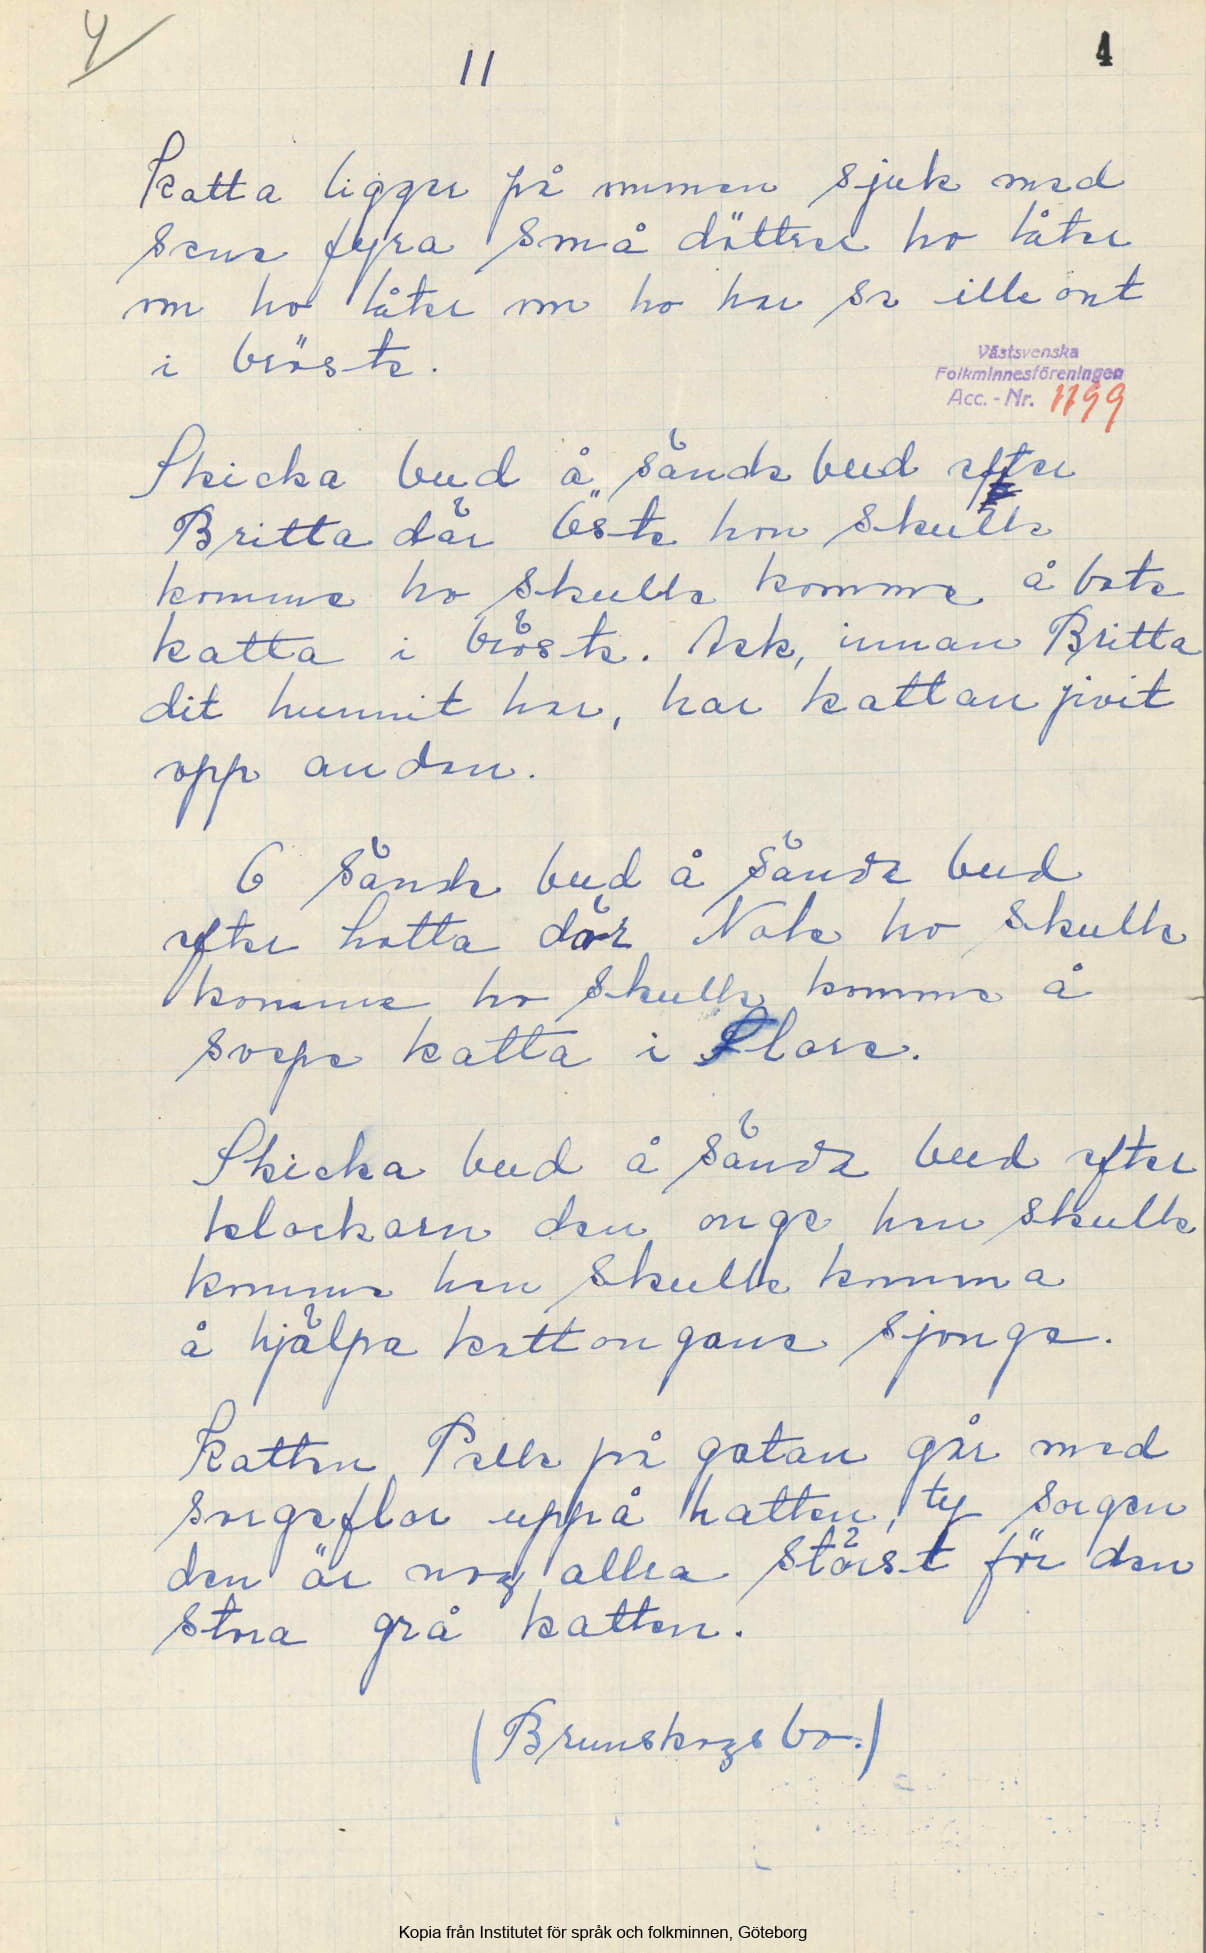 4
11
4
Katta ligger på mumen sjuk med
sene fyra små döttrer ho låter
om ho låter om ho har so ille ont
i bröste.
Västsvenska
Folkminnesföreningen
Acc. - Nr. 1799
Skicka bud å sände bud efter
Britta där Öste hon skulle
komme ho skulle komme å bote
katta i bröste. Ack, innan Britta
dit hunnit har, har kattan jivit
opp anden.
O sände bud å sände bud
efter Lotta där Nole ho skulle
komme ho skulle komme å
svepe katta i flore.
Skicka bud å sände bud efter
klockarn den onge han skulle
komme han skulle komma
å hjälpa kattongane sjonge.
Katten Pelle på gatan går med
sorgeflor uppå hatten, ty sorgen
den är nog allra störst för den
stora grå katten.
(Brunskogsbo.)
Kopia från Institutet för språk och folkminnen, Göteborg